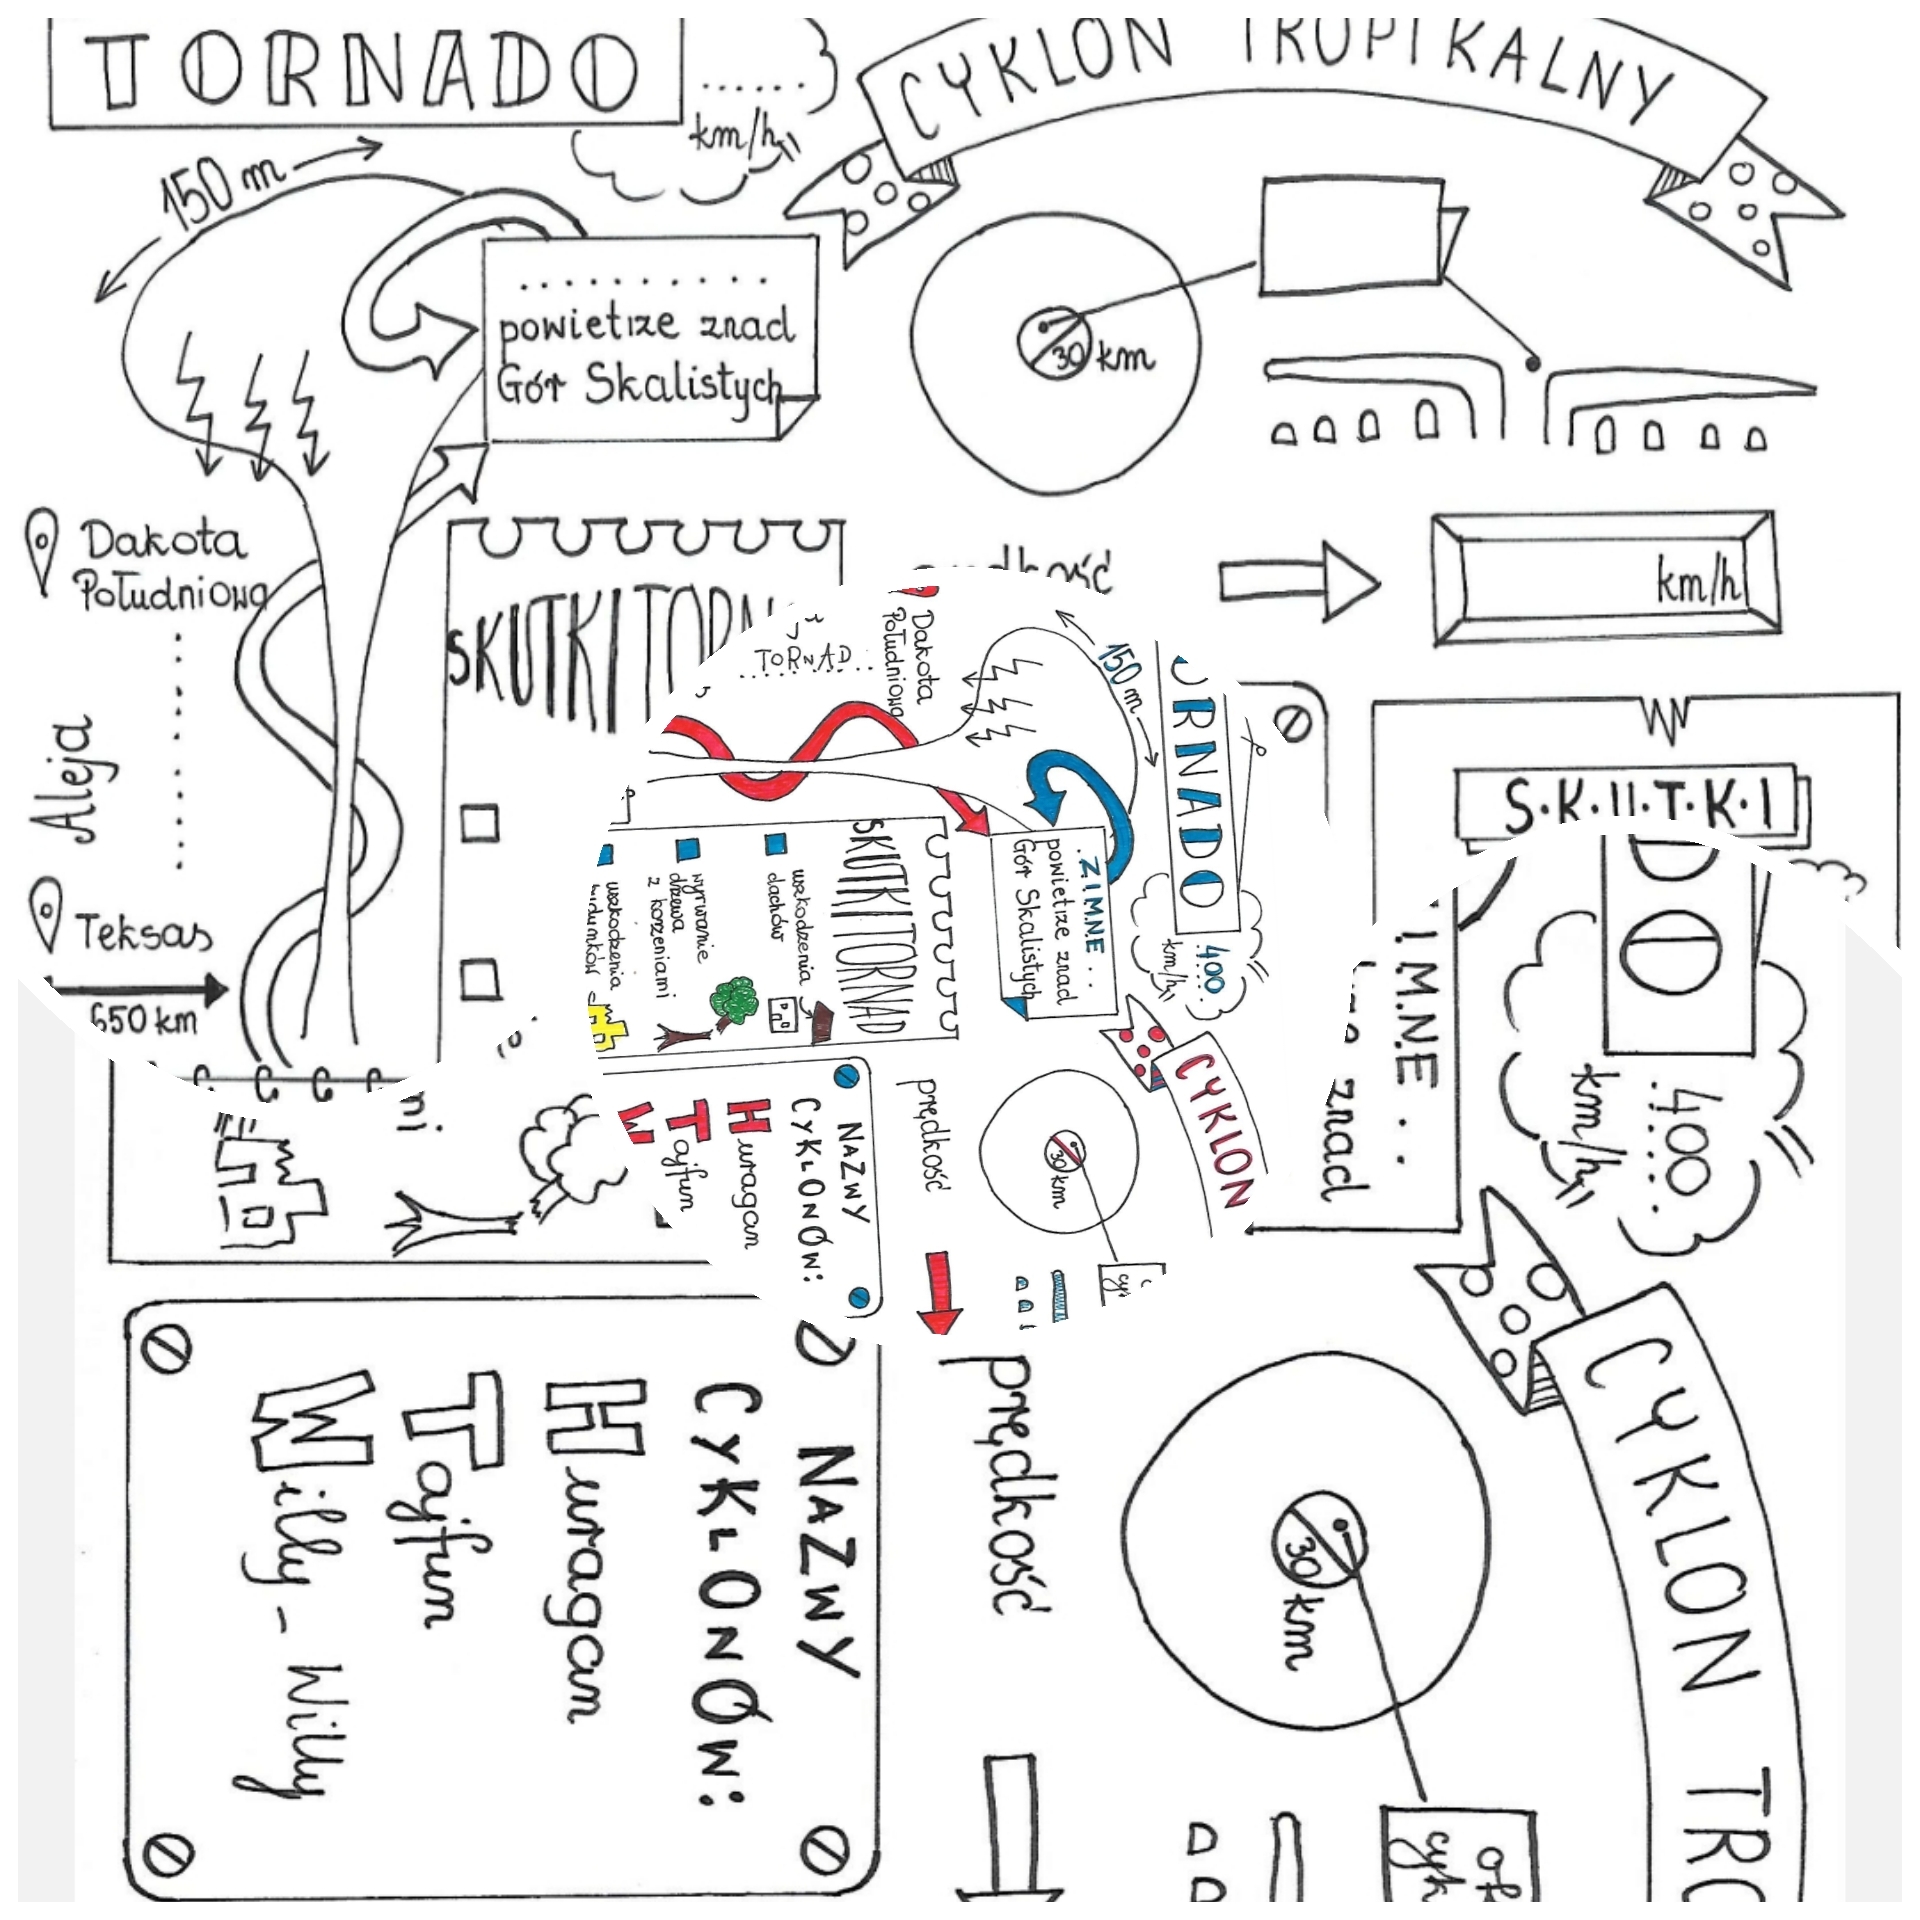 TORNADO
......
km/h
CYKLON TROPIKALNY
150 m
..........
powietrze znad
Gór Skalistych
30 km
Dakota
Południowa
Aleja
Teksas
650 km
km/h
SKUTKI
S.K.U.T.K.I
TORNAD..
Dakota
Południowa
150 m
ORNADO
400
km/h
.ZIMNE..
powietrze znad
Gór Skalistych
SKUTKI TORNAD
uszkodzenia
dachów
wyrwanie
drzewa
z korzeniami
uszkodzenia
CYKLON
30 km
prędkość
NAZWY
CYKLONÓW:
Huragan
Tajfun
W
I.M.N.E..
znad
DO
.400.
km/h
CYKLON TRO
30 km
prędkość
NAZWY
CYKLONÓW:
Huragan
Tajfun
Willy - Willy